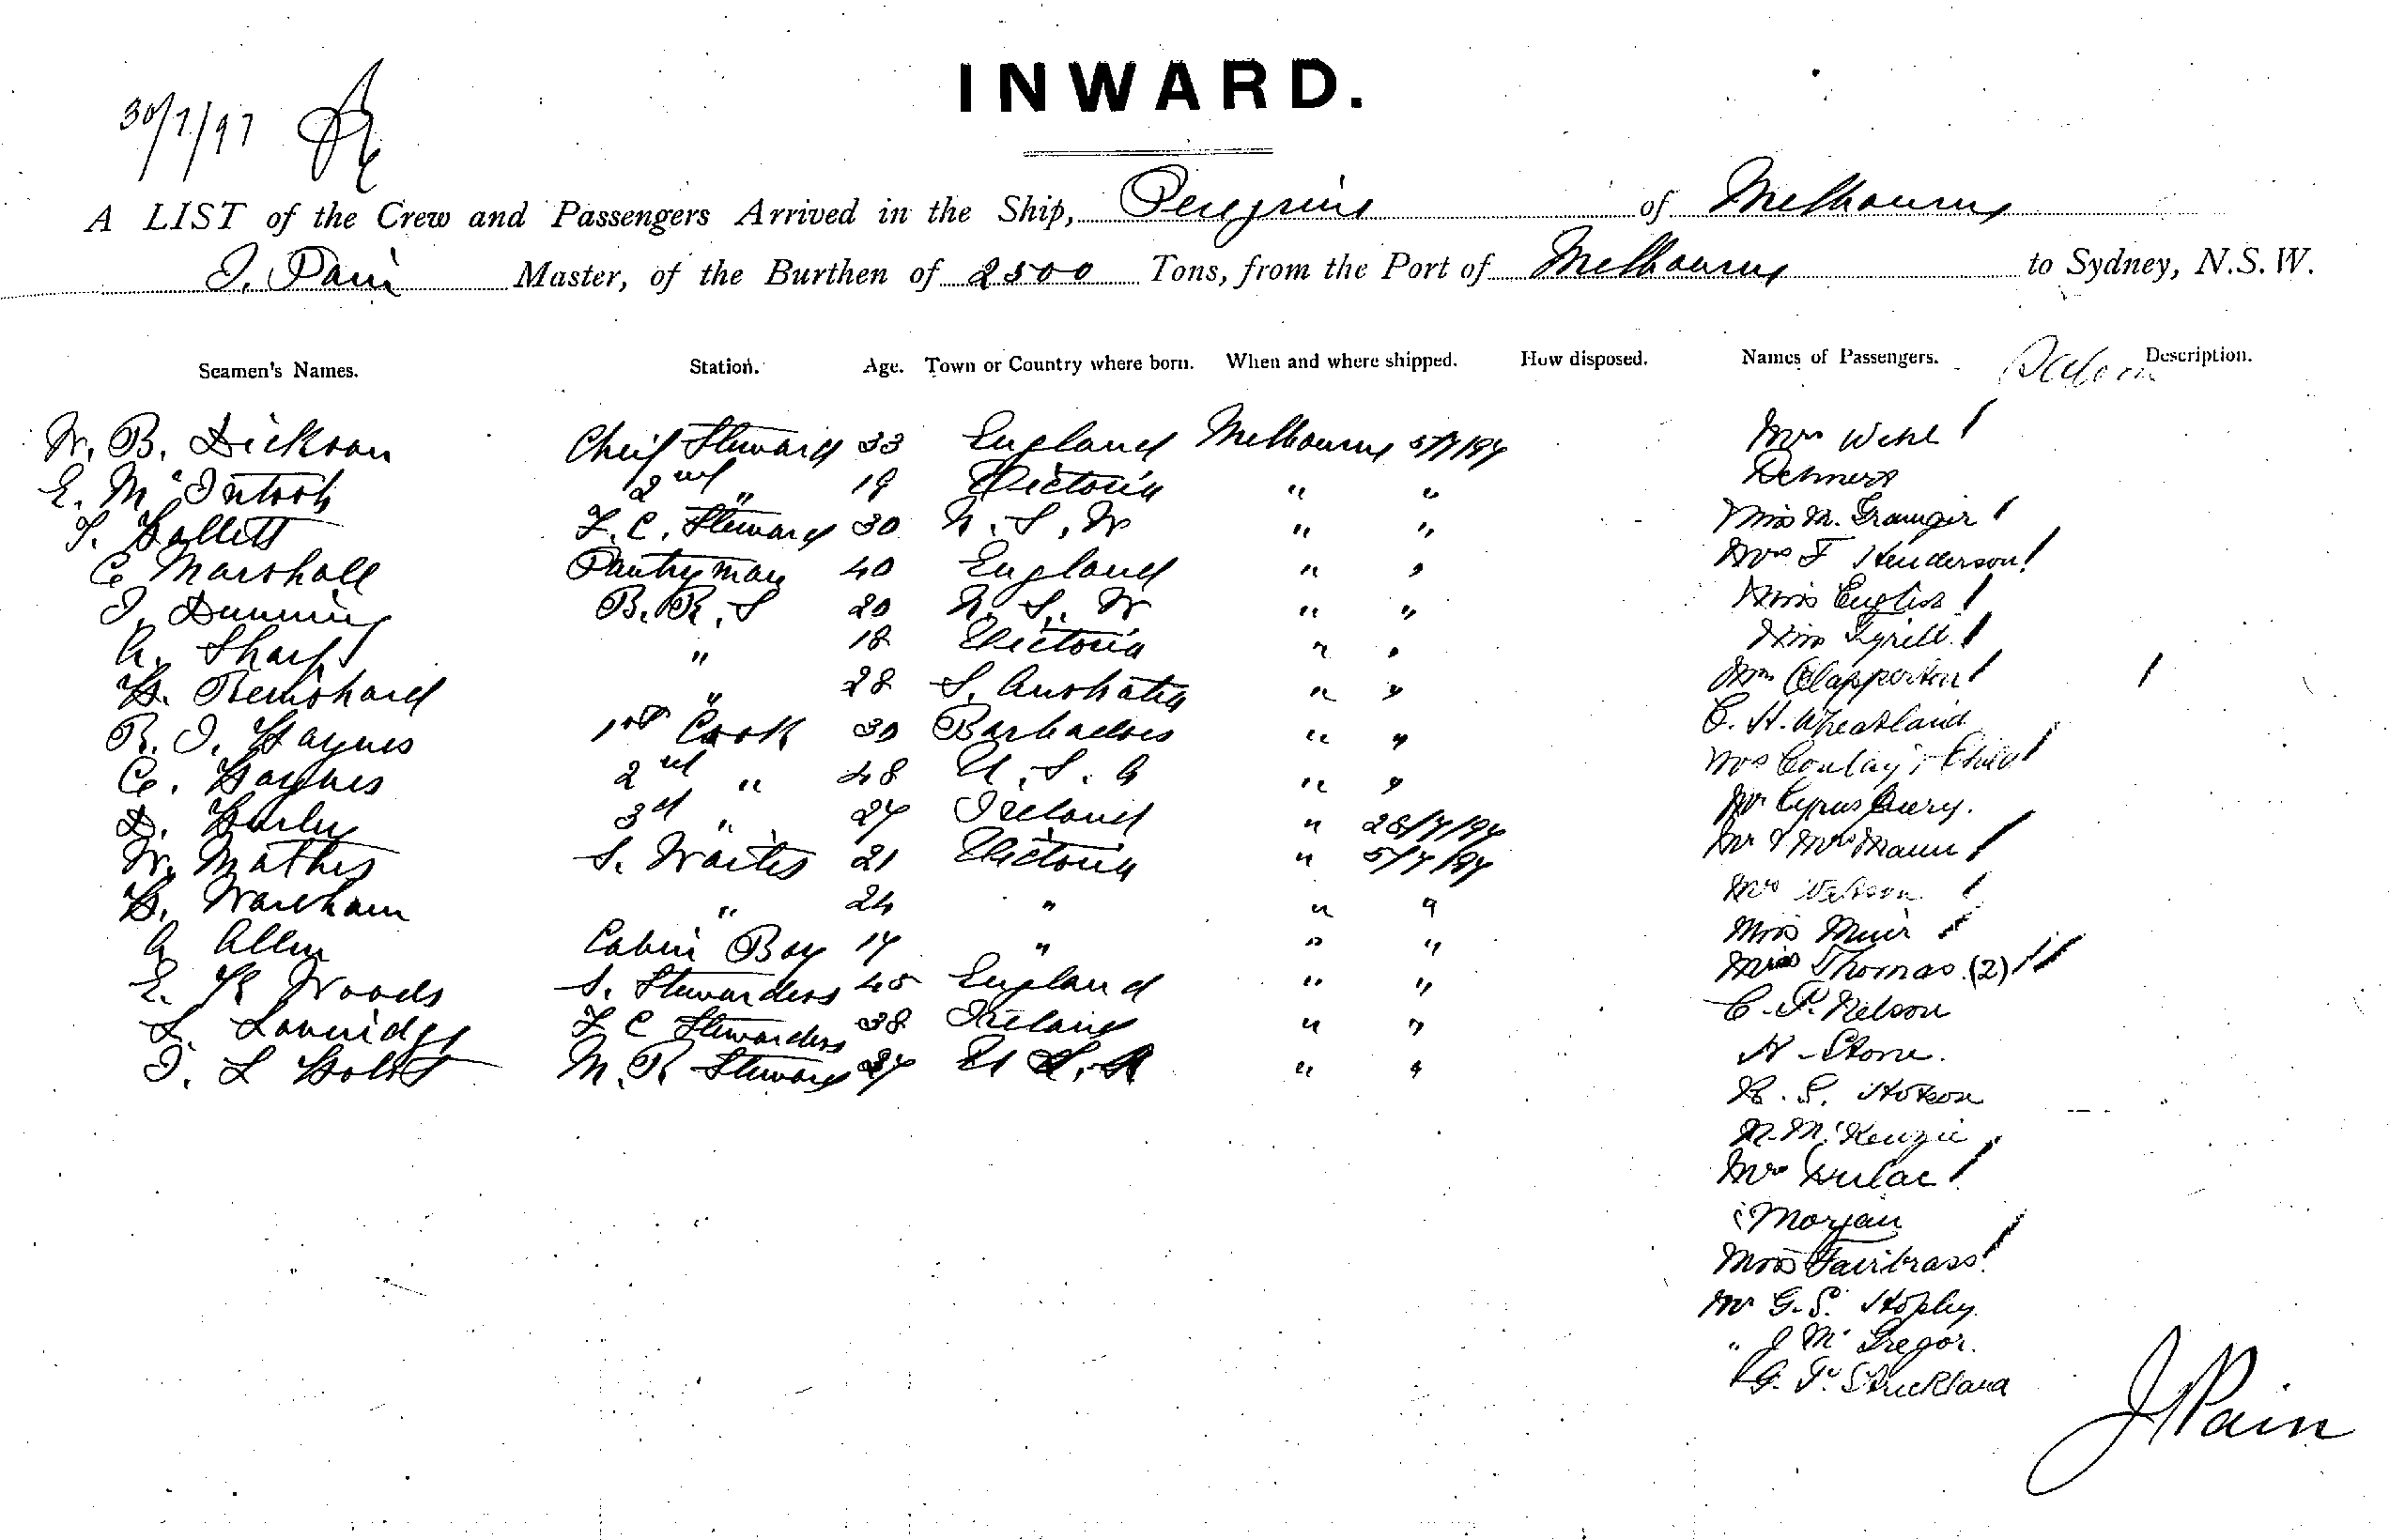 INWARD.
30/7/97
A LIST of the Crew and Passengers Arrived in the Ship, Peregrine of Melbourne
J. Pain Master, of the Burthen of 2500 Tons, from the Port of Melbourne to Sydney, N.S.W.
Seamen's Names. Station. Age. Town or Country where born. When and where shipped. How disposed. Names of Passengers. Saloon Description.
W. B. Dickson Cheif Steward 33 England Melbourne 5/7/97 Mrs Wehl
E. McIntosh 2nd " 19 Victoria " " Dehnert
T. Hallett F. C. Steward 30 N. S. W " " Miss M. Grainger
C Marshall Pantryman 40 England " " Mrs F Henderson
J. Dunning B. R. S 20 N. S. W " " Miss English
A. Sharp " 18 Victoria " " Miss Tyrell
H. " 28 S. Australia " " Mrs Clapperton
R. J. Haynes 1st Cook 30 Barbadoes " " C. H. Wheatland
C. Haynes 2nd " 48 U. S. A " " Mrs Conlay & Child
D. Hurley 3rd " 27 Ireland " 28/7/97 Mr Cyrus
W. Mathis S. Waiter 21 Victoria " 5/7/97 Mr & Mrs Mann
H. Wareham " 24 " " " Mrs Watson
A Allen Cabin Boy 17 " " " Miss Muir
E. K Woods S. Stewardess 45 England " " Miss Thomas (2)
L. F C Stewardess 38 Ireland " " C. P. Nelson
J. L Holst M. R Steward 27 U S. A " " N. Stone.
R. S. Hobson
N. McKenzie
Mrs Dulac
Morgan
Miss Fairbrass
Mr G. S. Hopley.
" J McGregor.
G. F. Strickland
J Pain